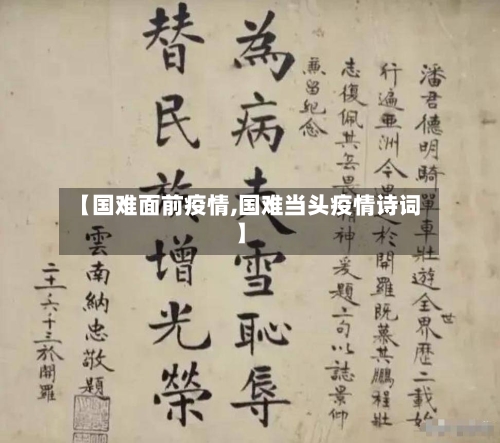 潘君德明騎單車壯遊全世界歷二載始
行遍亞洲今於開羅既慕其鵬程壯
志復佩其無畏精神爰題二句以誌景仰
兼留紀念
為病夫雪恥辱
替民族增光榮
雲南納忠敬題
六十三於開羅
【国难面前疫情,国难当头疫情诗词
】